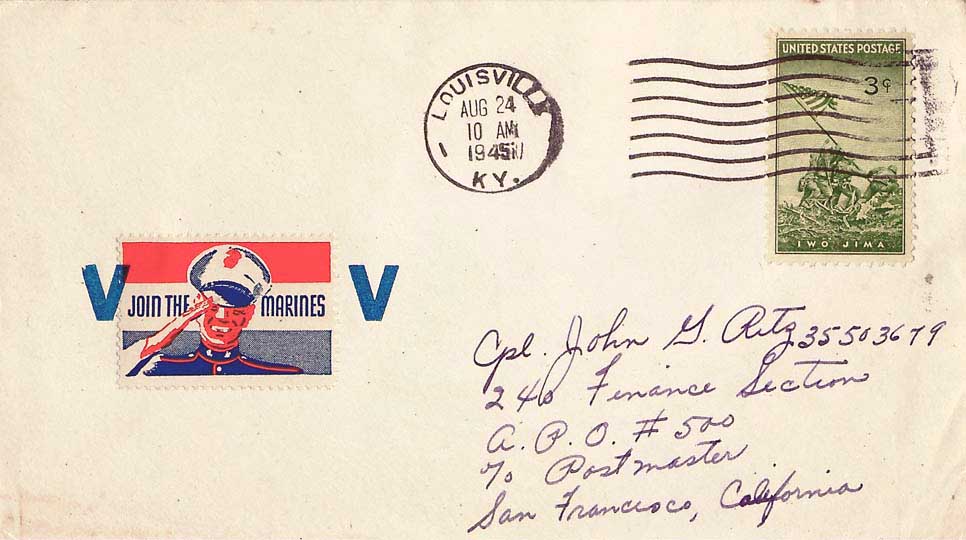 LOUISVILLE
AUG 24
10 AM
1945
KY.
UNITED STATES POSTAGE
3¢
IWO JIMA
V JOIN THE MARINES V
Cpl. John G. Ritz 35503679
240 Finance Section
A. P. O. # 500
c/o Postmaster
San Francisco, California